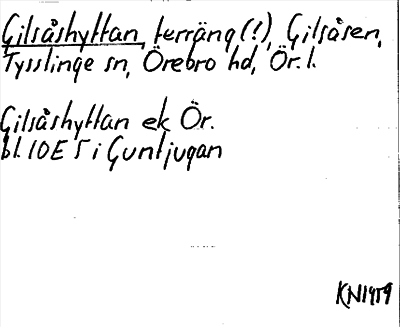 Gilsåshyttan, terräng (!), Gilsåsen,
Tysslinge sn, Örebro hd, Ör. l.
Gilsåshyttan ek Ör.
bl. 10E 5 i Guntjugan
KN1959